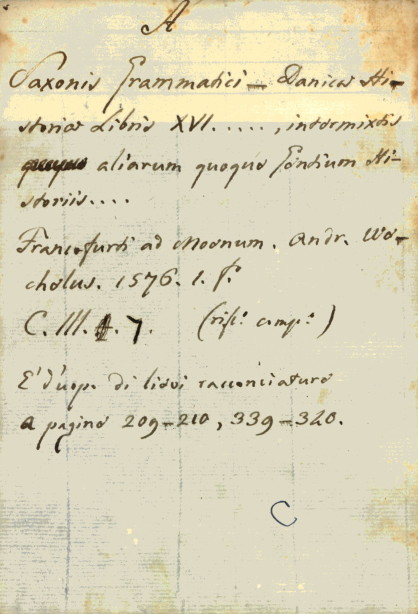 A
Saxonis Grammatici — Danicæ Hi-
storiæ Libris XVI....., intermixtis
aliarum quoque Gentium Hi-
storiis....
Francofurti ad Moenum. Andr. We-
chelus. 1576. 1. f.
C. III. 4. 7. (rist. comp.)
È d'uop. di lievi racconciature
a pagine 209-210, 339-320.
C